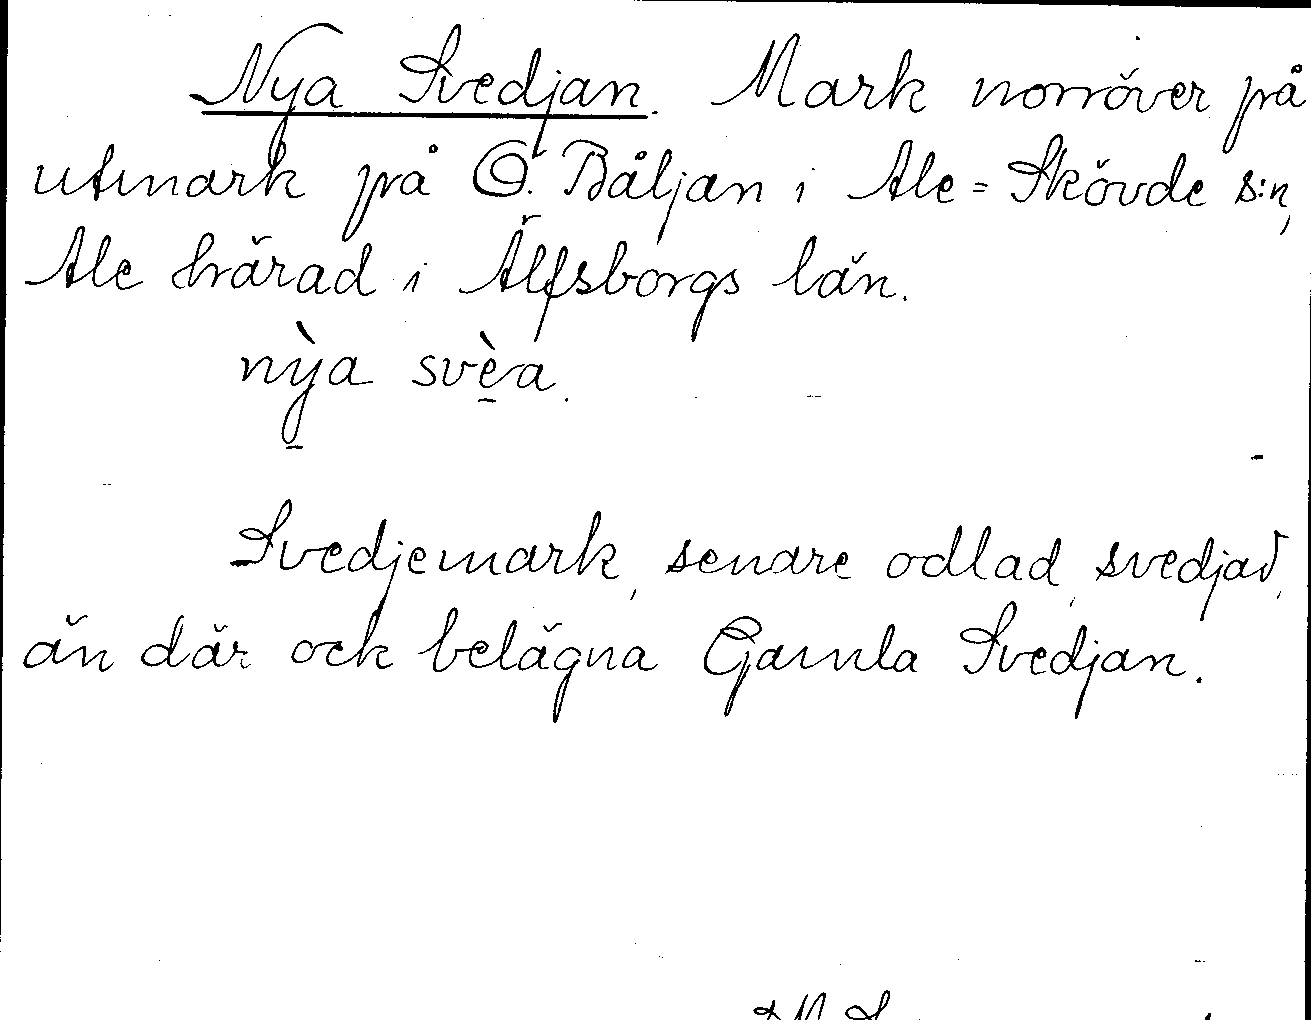 Nya Svedjan. Mark norröver på
utmark på Ö. Båljan i Ale=Skövde s:n,
Ale härad i Älfsborgs län.
nỳa svèa.
Svedjemark, senare odlad, svedjad,
än där ock belägna Gamla Svedjan.